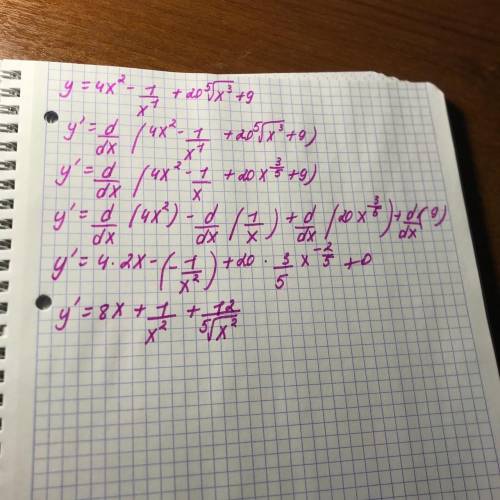 y = 4x² - 1/x¹ + 20 ⁵√x³ + 9
y' = d/dx (4x² - 1/x¹ + 20 ⁵√x³ + 9)
y' = d/dx (4x² - 1/x + 20x^(3/5) + 9)
y' = d/dx (4x²) - d/dx (1/x) + d/dx (20x^(3/5)) + d/dx (9)
y' = 4 · 2x - (-1/x²) + 20 · 3/5 x^(-2/5) + 0
y' = 8x + 1/x² + 12/⁵√x²